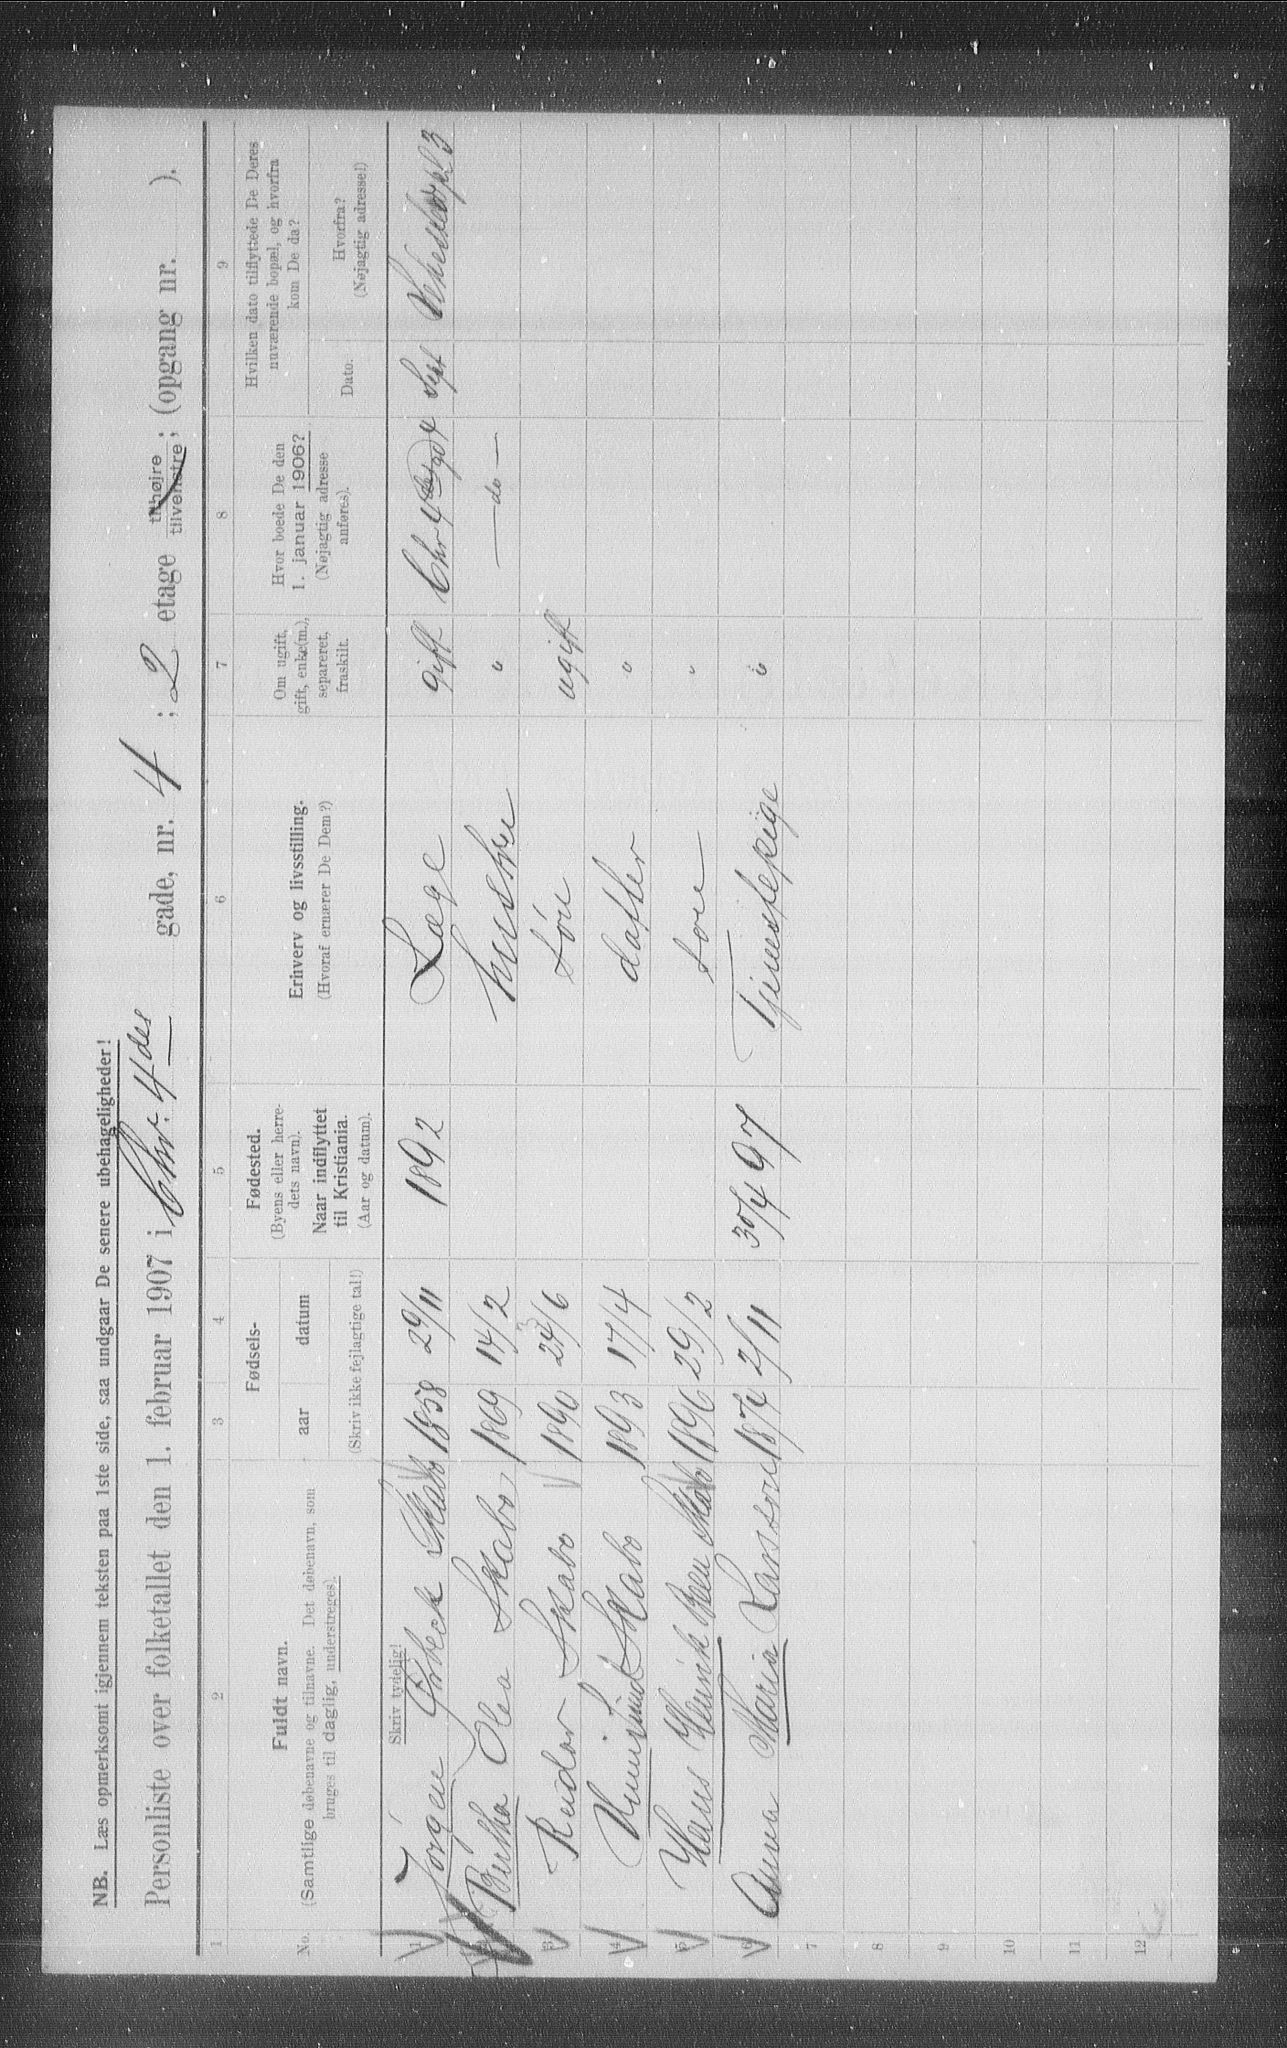 NB. Læs opmerksomt igjennem teksten paa 1ste side, saa undgaar De senere ubehageligheder!
Personliste over folketallet den 1. februar 1907 i Chr. 4des gade, nr. 4 ; 2 etage tilhøjre tilvenstre; (opgang nr. ).
1 2 3 4 5 6 7 8 9
No. Fuldt navn. (Samtlige døbenavne og tilnavne. Det døbenavn, som bruges til daglig, understreges). Fødsels- aar datum (Skriv ikke fejlagtige tal!) Fødested. (Byens eller herredets navn). Naar indflyttet til Kristiania. (Aar og datum). Erhverv og livsstilling. (Hvoraf ernærer De Dem?) Om ugift, gift, enke(m.), separeret, fraskilt. Hvor boede De den 1. januar 1906? (Nøjagtig adresse anføres). Hvilken dato tilflyttede De Deres nuværende bopæl, og hvorfra kom De da? Dato. Hvorfra? (Nøjagtig adresse!)
Skriv tydelig!
1 Jørgen Ørbeck Skabo 1858 29/11 1892 Læge gift Chr 4des gd 4
2 Olea Skabo 1869 14/2 hustru " — do —
3 Reidar Skabo 1890 24/6 søn ugift
4 Skabo 1893 17/4 datter "
5 Hans Henrik Skabo 1896 29/2 søn "
6 Anna Maria Larsson 1874 2/11 30/4 97 Tjenestepige "
7
8
9
10
11
12